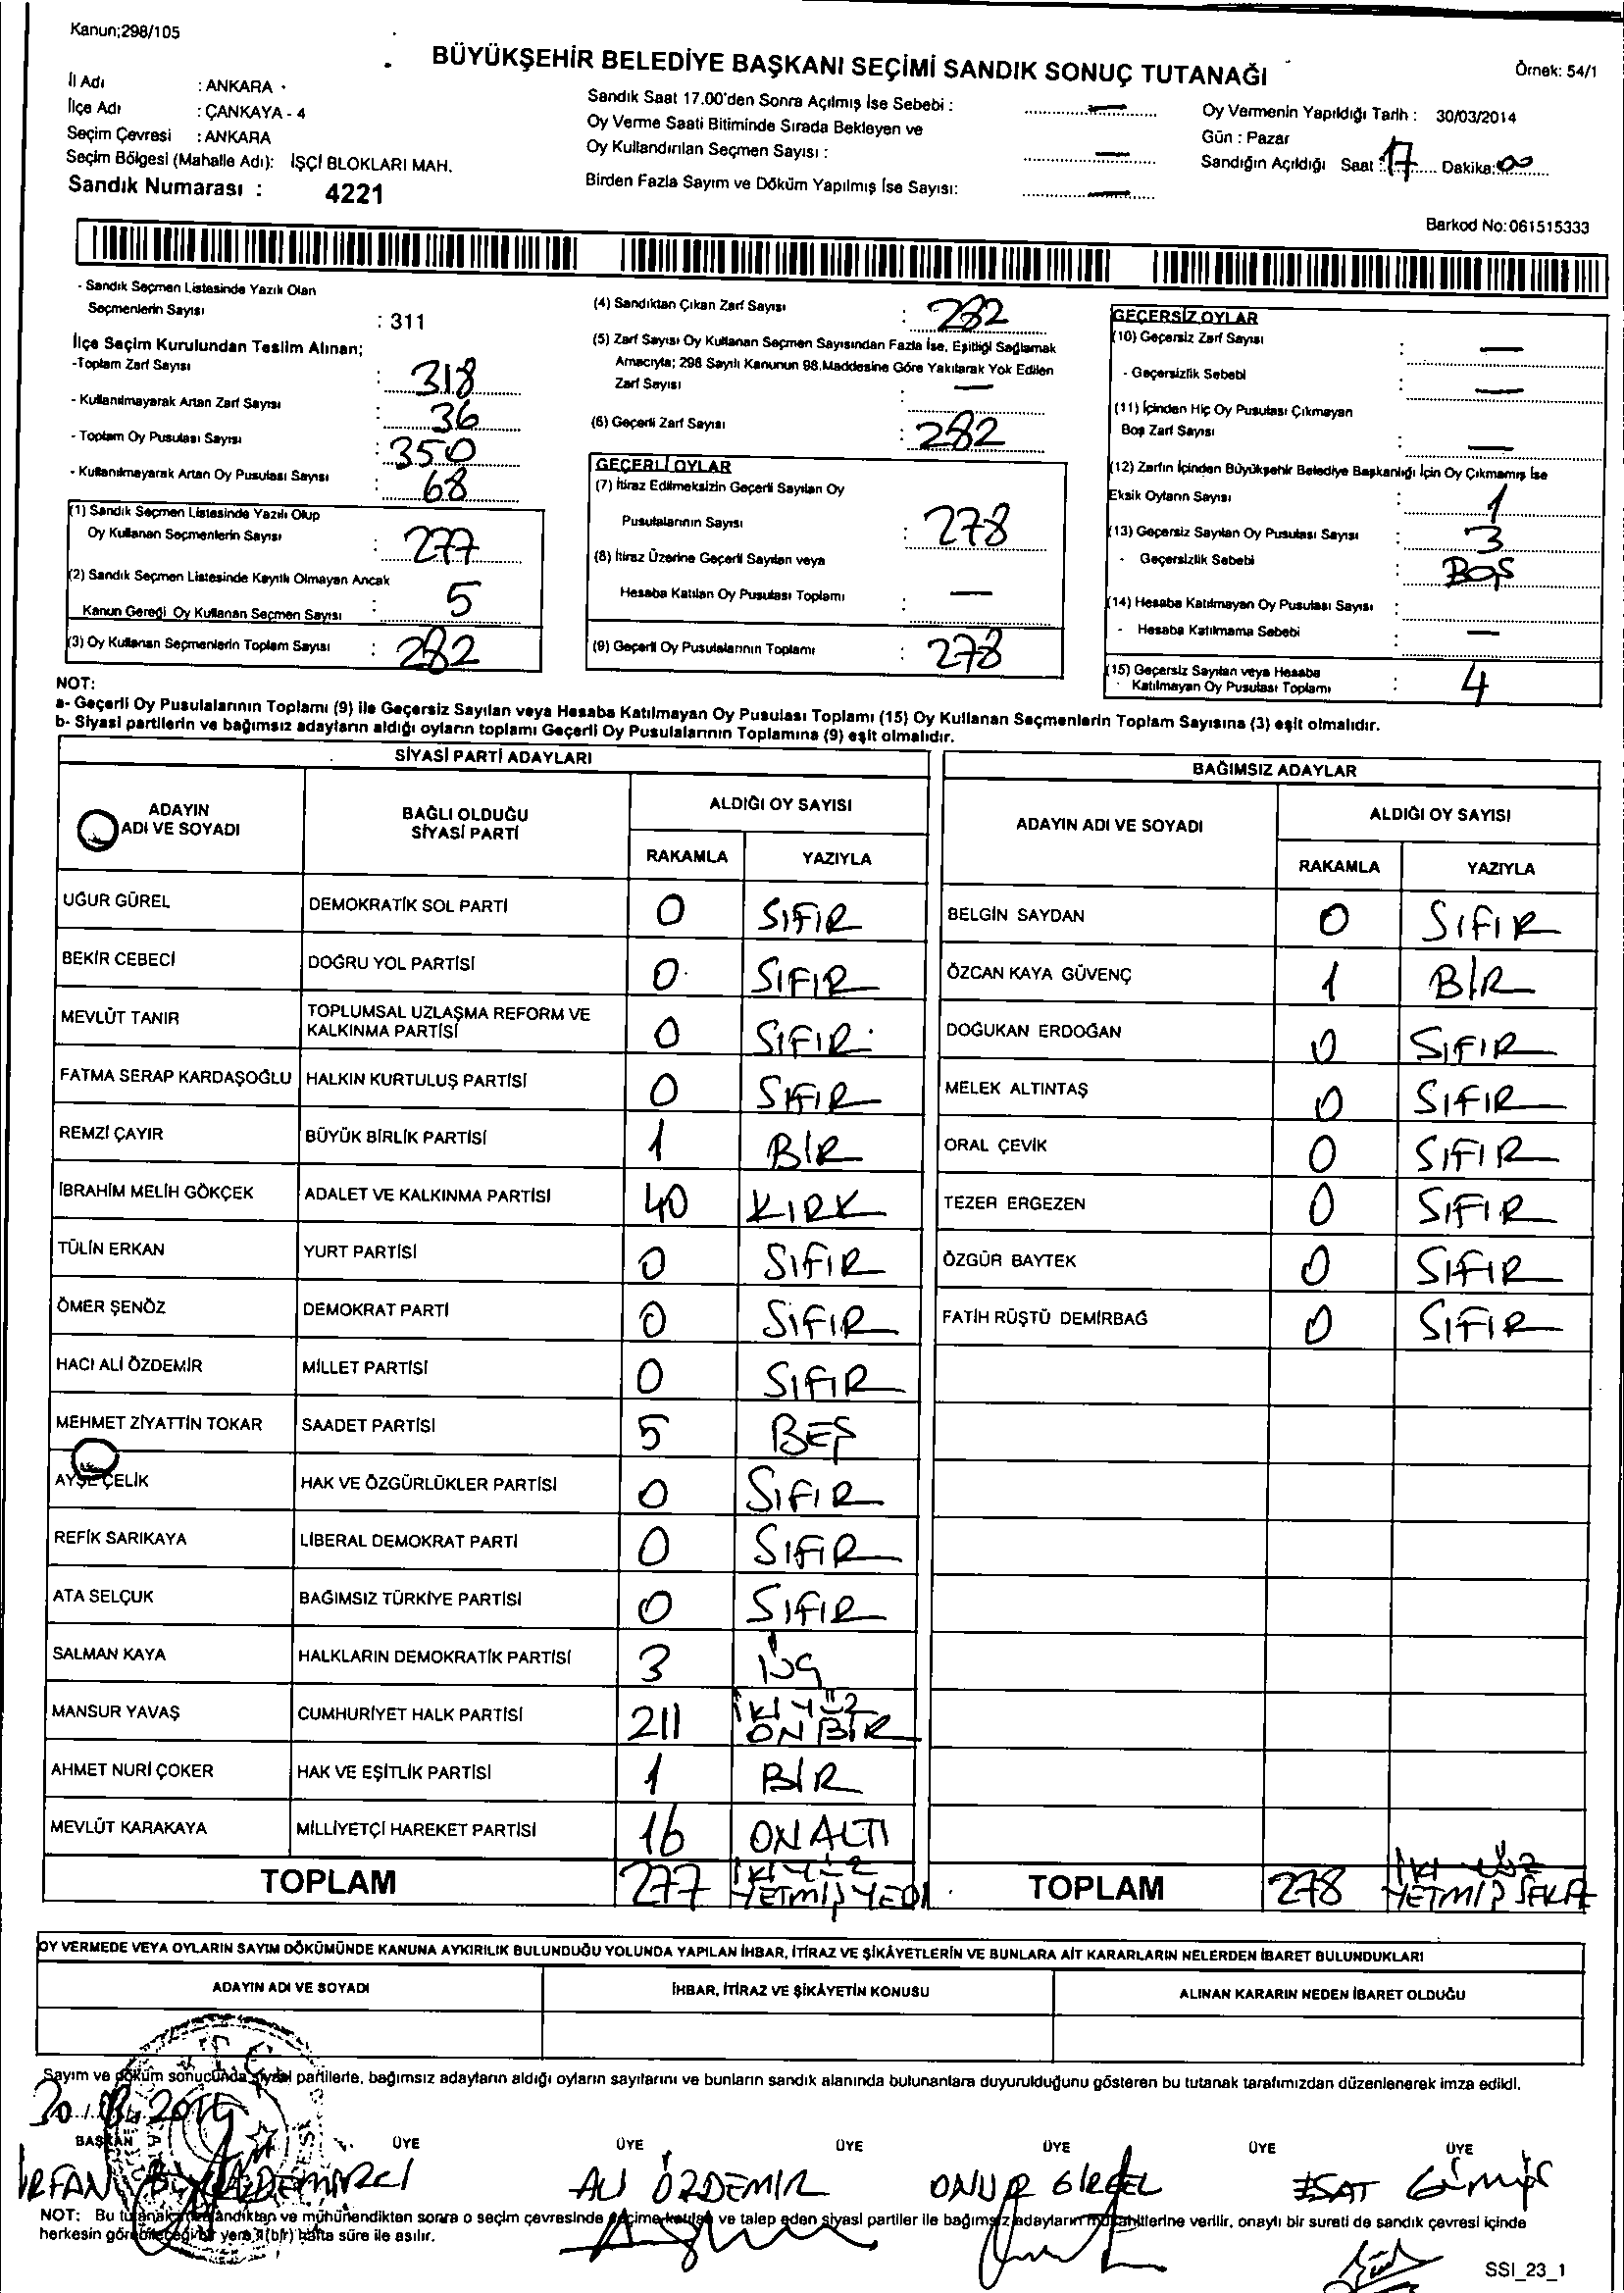 Kanun;298/105
BÜYÜKŞEHİR BELEDİYE BAŞKANI SEÇİMİ SANDIK SONUÇ TUTANAĞI
Örnek: 54/1
İl Adı : ANKARA
İlçe Adı : ÇANKAYA - 4
Seçim Çevresi : ANKARA
Seçim Bölgesi (Mahalle Adı): İŞÇİ BLOKLARI MAH.
Sandık Numarası : 4221
Sandık Saat 17.00'den Sonra Açılmış İse Sebebi : —
Oy Verme Saati Bitiminde Sırada Bekleyen ve
Oy Kullandırılan Seçmen Sayısı : —
Birden Fazla Sayım ve Döküm Yapılmış İse Sayısı: —
Oy Vermenin Yapıldığı Tarih : 30/03/2014
Gün : Pazar
Sandığın Açıldığı Saat : 17 Dakika: 00
Barkod No:061515333
- Sandık Seçmen Listesinde Yazılı Olan
Seçmenlerin Sayısı : 311
İlçe Seçim Kurulundan Teslim Alınan;
-Toplam Zarf Sayısı : 318
- Kullanılmayarak Artan Zarf Sayısı : 36
- Toplam Oy Pusulası Sayısı : 350
- Kullanılmayarak Artan Oy Pusulası Sayısı : 68
(1) Sandık Seçmen Listesinde Yazılı Olup
Oy Kullanan Seçmenlerin Sayısı : 277
(2) Sandık Seçmen Listesinde Kayıtlı Olmayan Ancak
Kanun Gereği Oy Kullanan Seçmen Sayısı : 5
(3) Oy Kullanan Seçmenlerin Toplam Sayısı : 282
(4) Sandıktan Çıkan Zarf Sayısı : 282
(5) Zarf Sayısı Oy Kullanan Seçmen Sayısından Fazla İse, Eşitliği Sağlamak
Amacıyla; 298 Sayılı Kanunun 98.Maddesine Göre Yakılarak Yok Edilen
Zarf Sayısı : —
(6) Geçerli Zarf Sayısı : 282
GEÇERLİ OYLAR
(7) İtiraz Edilmeksizin Geçerli Sayılan Oy
Pusulalarının Sayısı : 278
(8) İtiraz Üzerine Geçerli Sayılan veya
Hesaba Katılan Oy Pusulası Toplamı : —
(9) Geçerli Oy Pusulalarının Toplamı : 278
GEÇERSİZ OYLAR
(10) Geçersiz Zarf Sayısı : —
- Geçersizlik Sebebi : —
(11) İçinden Hiç Oy Pusulası Çıkmayan
Boş Zarf Sayısı : —
(12) Zarfın İçinden Büyükşehir Belediye Başkanlığı İçin Oy Çıkmamış İse
Eksik Oyların Sayısı : 1
(13) Geçersiz Sayılan Oy Pusulası Sayısı : 3
- Geçersizlik Sebebi : BOŞ
(14) Hesaba Katılmayan Oy Pusulası Sayısı :
- Hesaba Katılmama Sebebi : —
(15) Geçersiz Sayılan veya Hesaba
Katılmayan Oy Pusulası Toplamı : 4
NOT:
a- Geçerli Oy Pusulalarının Toplamı (9) ile Geçersiz Sayılan veya Hesaba Katılmayan Oy Pusulası Toplamı (15) Oy Kullanan Seçmenlerin Toplam Sayısına (3) eşit olmalıdır.
b- Siyasi partilerin ve bağımsız adayların aldığı oyların toplamı Geçerli Oy Pusulalarının Toplamına (9) eşit olmalıdır.
SİYASİ PARTİ ADAYLARI
ADAYIN ADI VE SOYADI BAĞLI OLDUĞU SİYASİ PARTİ ALDIĞI OY SAYISI
RAKAMLA YAZIYLA
UĞUR GÜREL DEMOKRATİK SOL PARTİ 0 SIFIR
BEKİR CEBECİ DOĞRU YOL PARTİSİ 0 SIFIR
MEVLÜT TANIR TOPLUMSAL UZLAŞMA REFORM VE KALKINMA PARTİSİ 0 SIFIR
FATMA SERAP KARDAŞOĞLU HALKIN KURTULUŞ PARTİSİ 0 SIFIR
REMZİ ÇAYIR BÜYÜK BİRLİK PARTİSİ 1 BİR
İBRAHİM MELİH GÖKÇEK ADALET VE KALKINMA PARTİSİ 40 KIRK
TÜLİN ERKAN YURT PARTİSİ 0 SIFIR
ÖMER ŞENÖZ DEMOKRAT PARTİ 0 SIFIR
HACI ALİ ÖZDEMİR MİLLET PARTİSİ 0 SIFIR
MEHMET ZİYATTİN TOKAR SAADET PARTİSİ 5 BEŞ
AYŞE ÇELİK HAK VE ÖZGÜRLÜKLER PARTİSİ 0 SIFIR
REFİK SARIKAYA LİBERAL DEMOKRAT PARTİ 0 SIFIR
ATA SELÇUK BAĞIMSIZ TÜRKİYE PARTİSİ 0 SIFIR
SALMAN KAYA HALKLARIN DEMOKRATİK PARTİSİ 3 ÜÇ
MANSUR YAVAŞ CUMHURİYET HALK PARTİSİ 211 İKİ YÜZ ON BİR
AHMET NURİ ÇOKER HAK VE EŞİTLİK PARTİSİ 1 BİR
MEVLÜT KARAKAYA MİLLİYETÇİ HAREKET PARTİSİ 16 ON ALTI
TOPLAM 277 İKİ YÜZ YETMİŞ YEDİ
BAĞIMSIZ ADAYLAR
ADAYIN ADI VE SOYADI ALDIĞI OY SAYISI
RAKAMLA YAZIYLA
BELGİN SAYDAN 0 SIFIR
ÖZCAN KAYA GÜVENÇ 1 BİR
DOĞUKAN ERDOĞAN 0 SIFIR
MELEK ALTINTAŞ 0 SIFIR
ORAL ÇEVİK 0 SIFIR
TEZER ERGEZEN 0 SIFIR
ÖZGÜR BAYTEK 0 SIFIR
FATİH RÜŞTÜ DEMİRBAĞ 0 SIFIR
TOPLAM 278 İKİ YÜZ YETMİŞ SEKİZ
OY VERMEDE VEYA OYLARIN SAYIM DÖKÜMÜNDE KANUNA AYKIRILIK BULUNDUĞU YOLUNDA YAPILAN İHBAR, İTİRAZ VE ŞİKÂYETLERİN VE BUNLARA AİT KARARLARIN NELERDEN İBARET BULUNDUKLARI
ADAYIN ADI VE SOYADI İHBAR, İTİRAZ VE ŞİKÂYETİN KONUSU ALINAN KARARIN NEDEN İBARET OLDUĞU
Sayım ve döküm sonucunda siyasi partilerle, bağımsız adayların aldığı oyların sayılarını ve bunların sandık alanında bulunanlara duyurulduğunu gösteren bu tutanak tarafımızdan düzenlenerek imza edildi.
30 2014
BAŞKAN ÜYE ÜYE ÜYE ÜYE ÜYE ÜYE
İRFAN ALİ ÖZDEMİR ONUR ESAT GÜMÜŞ
NOT: Bu tutanak imzalandıktan ve mühürlendikten sonra o seçim çevresinde seçime katılan ve talep eden siyasi partiler ile bağımsız adayların müşahitlerine verilir, onaylı bir sureti de sandık çevresi içinde
herkesin görebileceği bir yere 1(bir) hafta süre ile asılır.
SSI_23_1